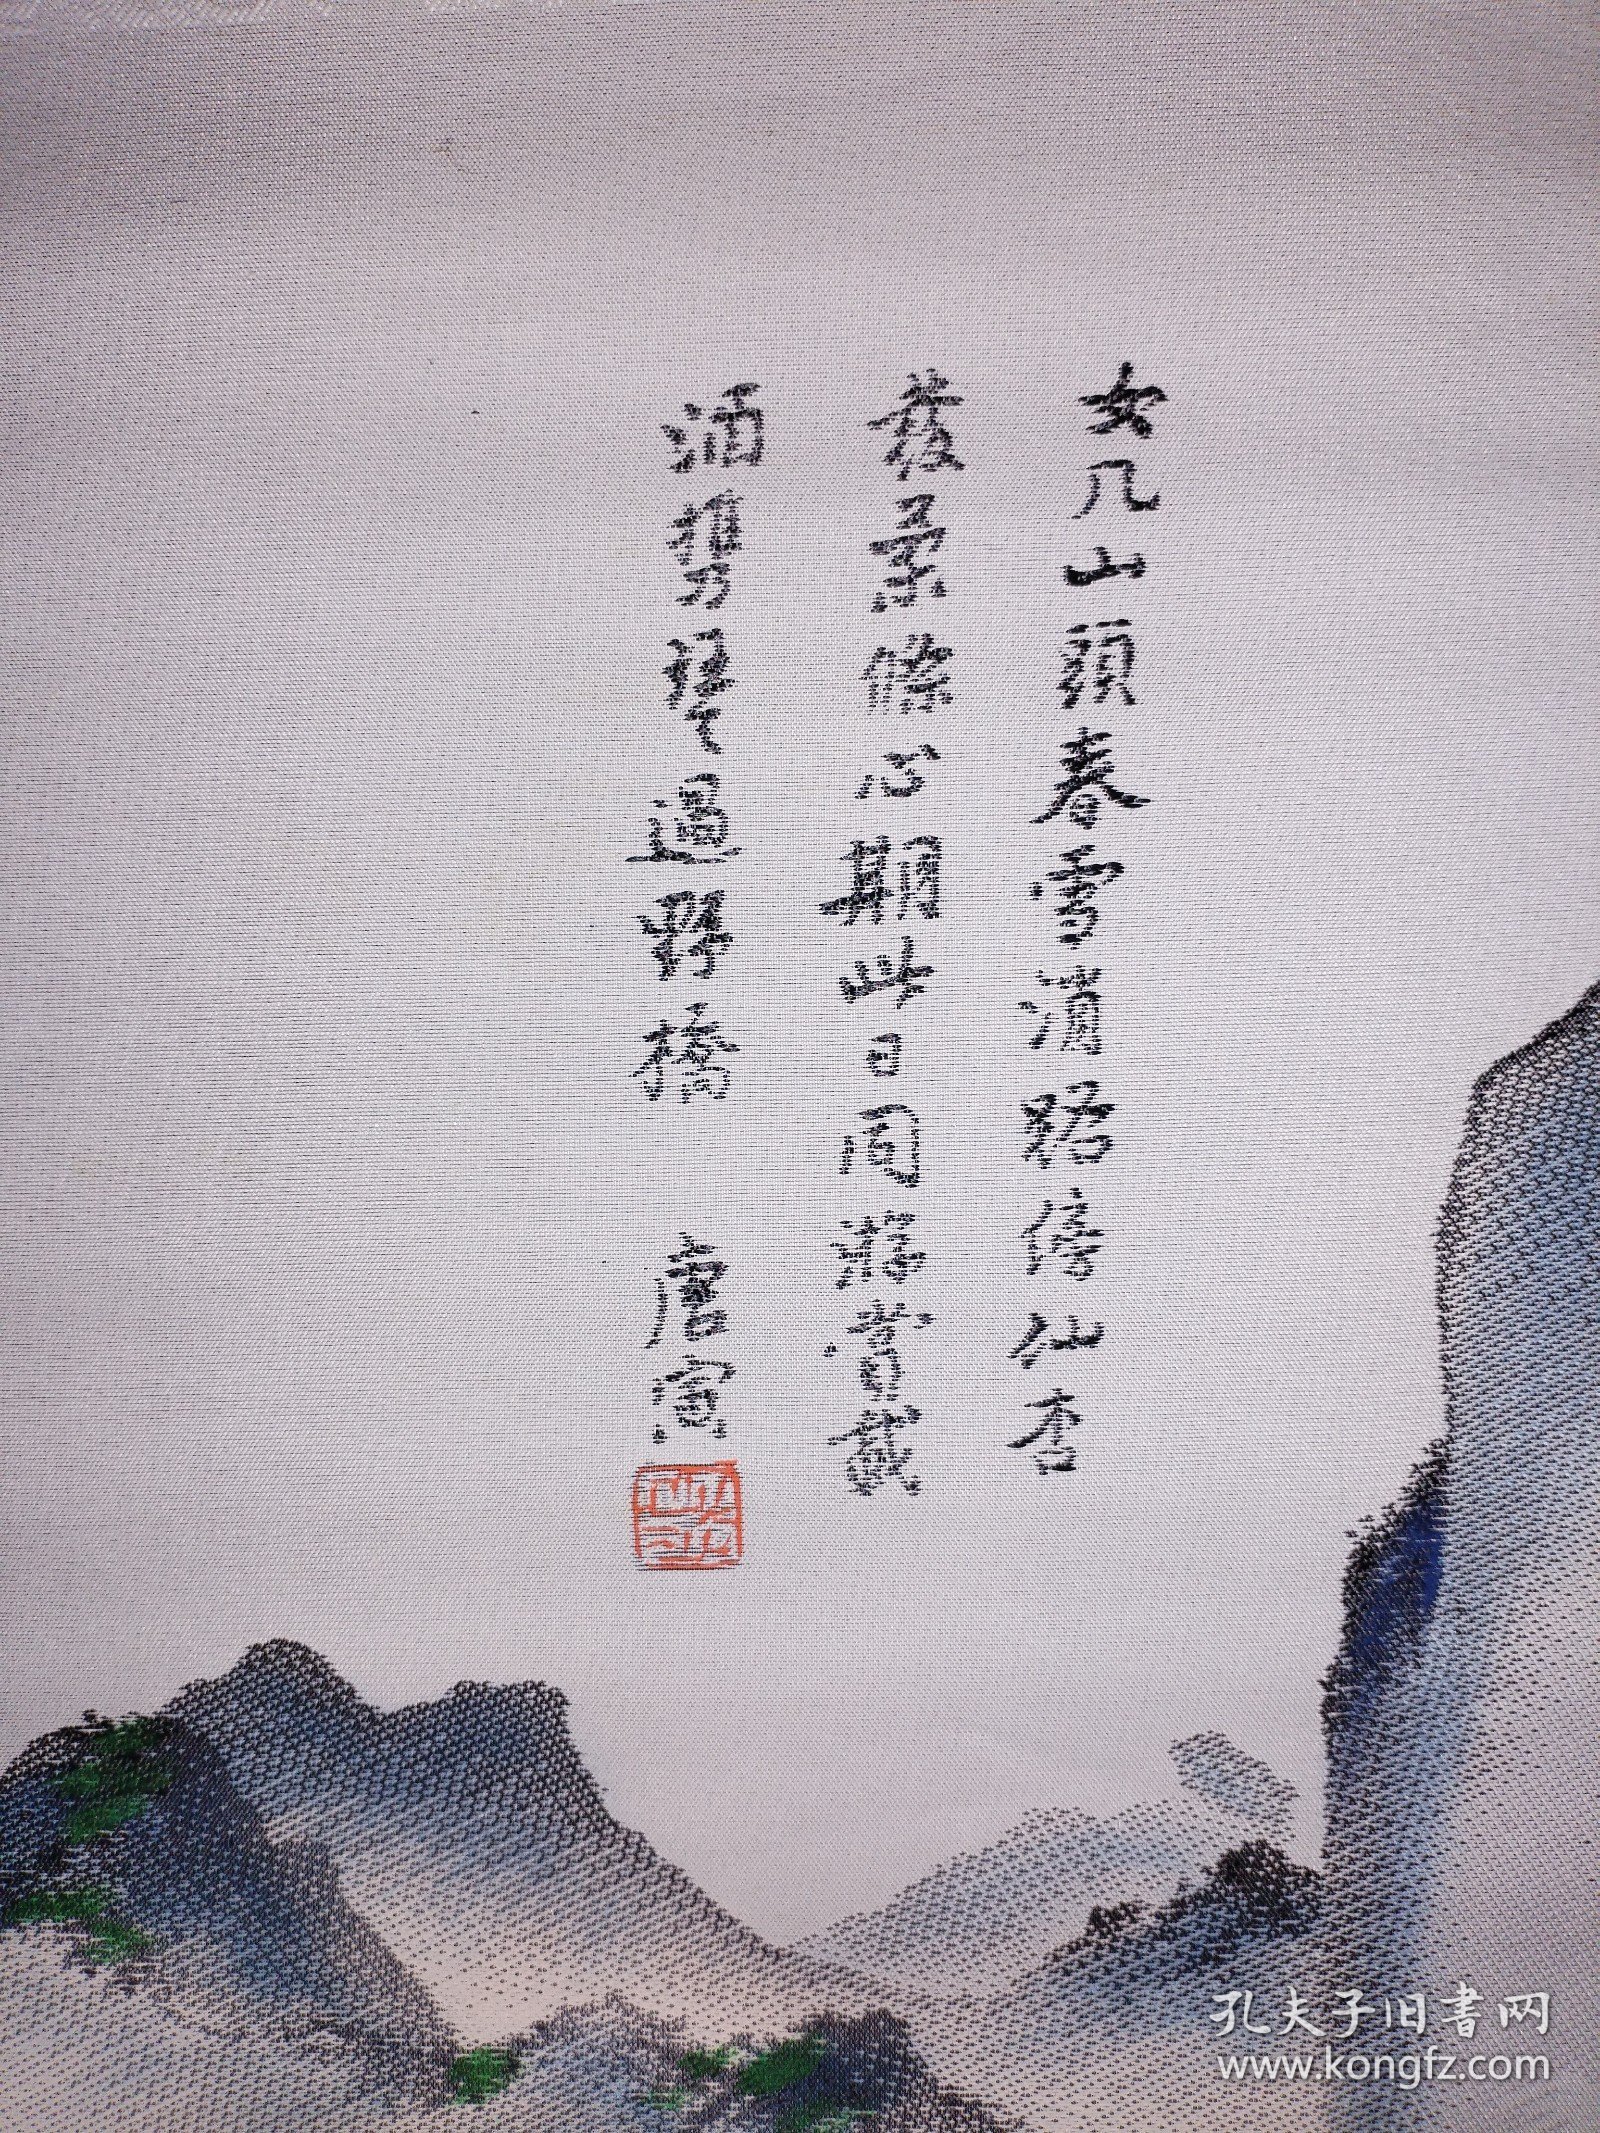 女几山頭春雪消路傍仙杏
發柔條心期此日同游賞載
酒攜琴過野橋 唐寅
孔夫子旧书网
www.kongfz.com